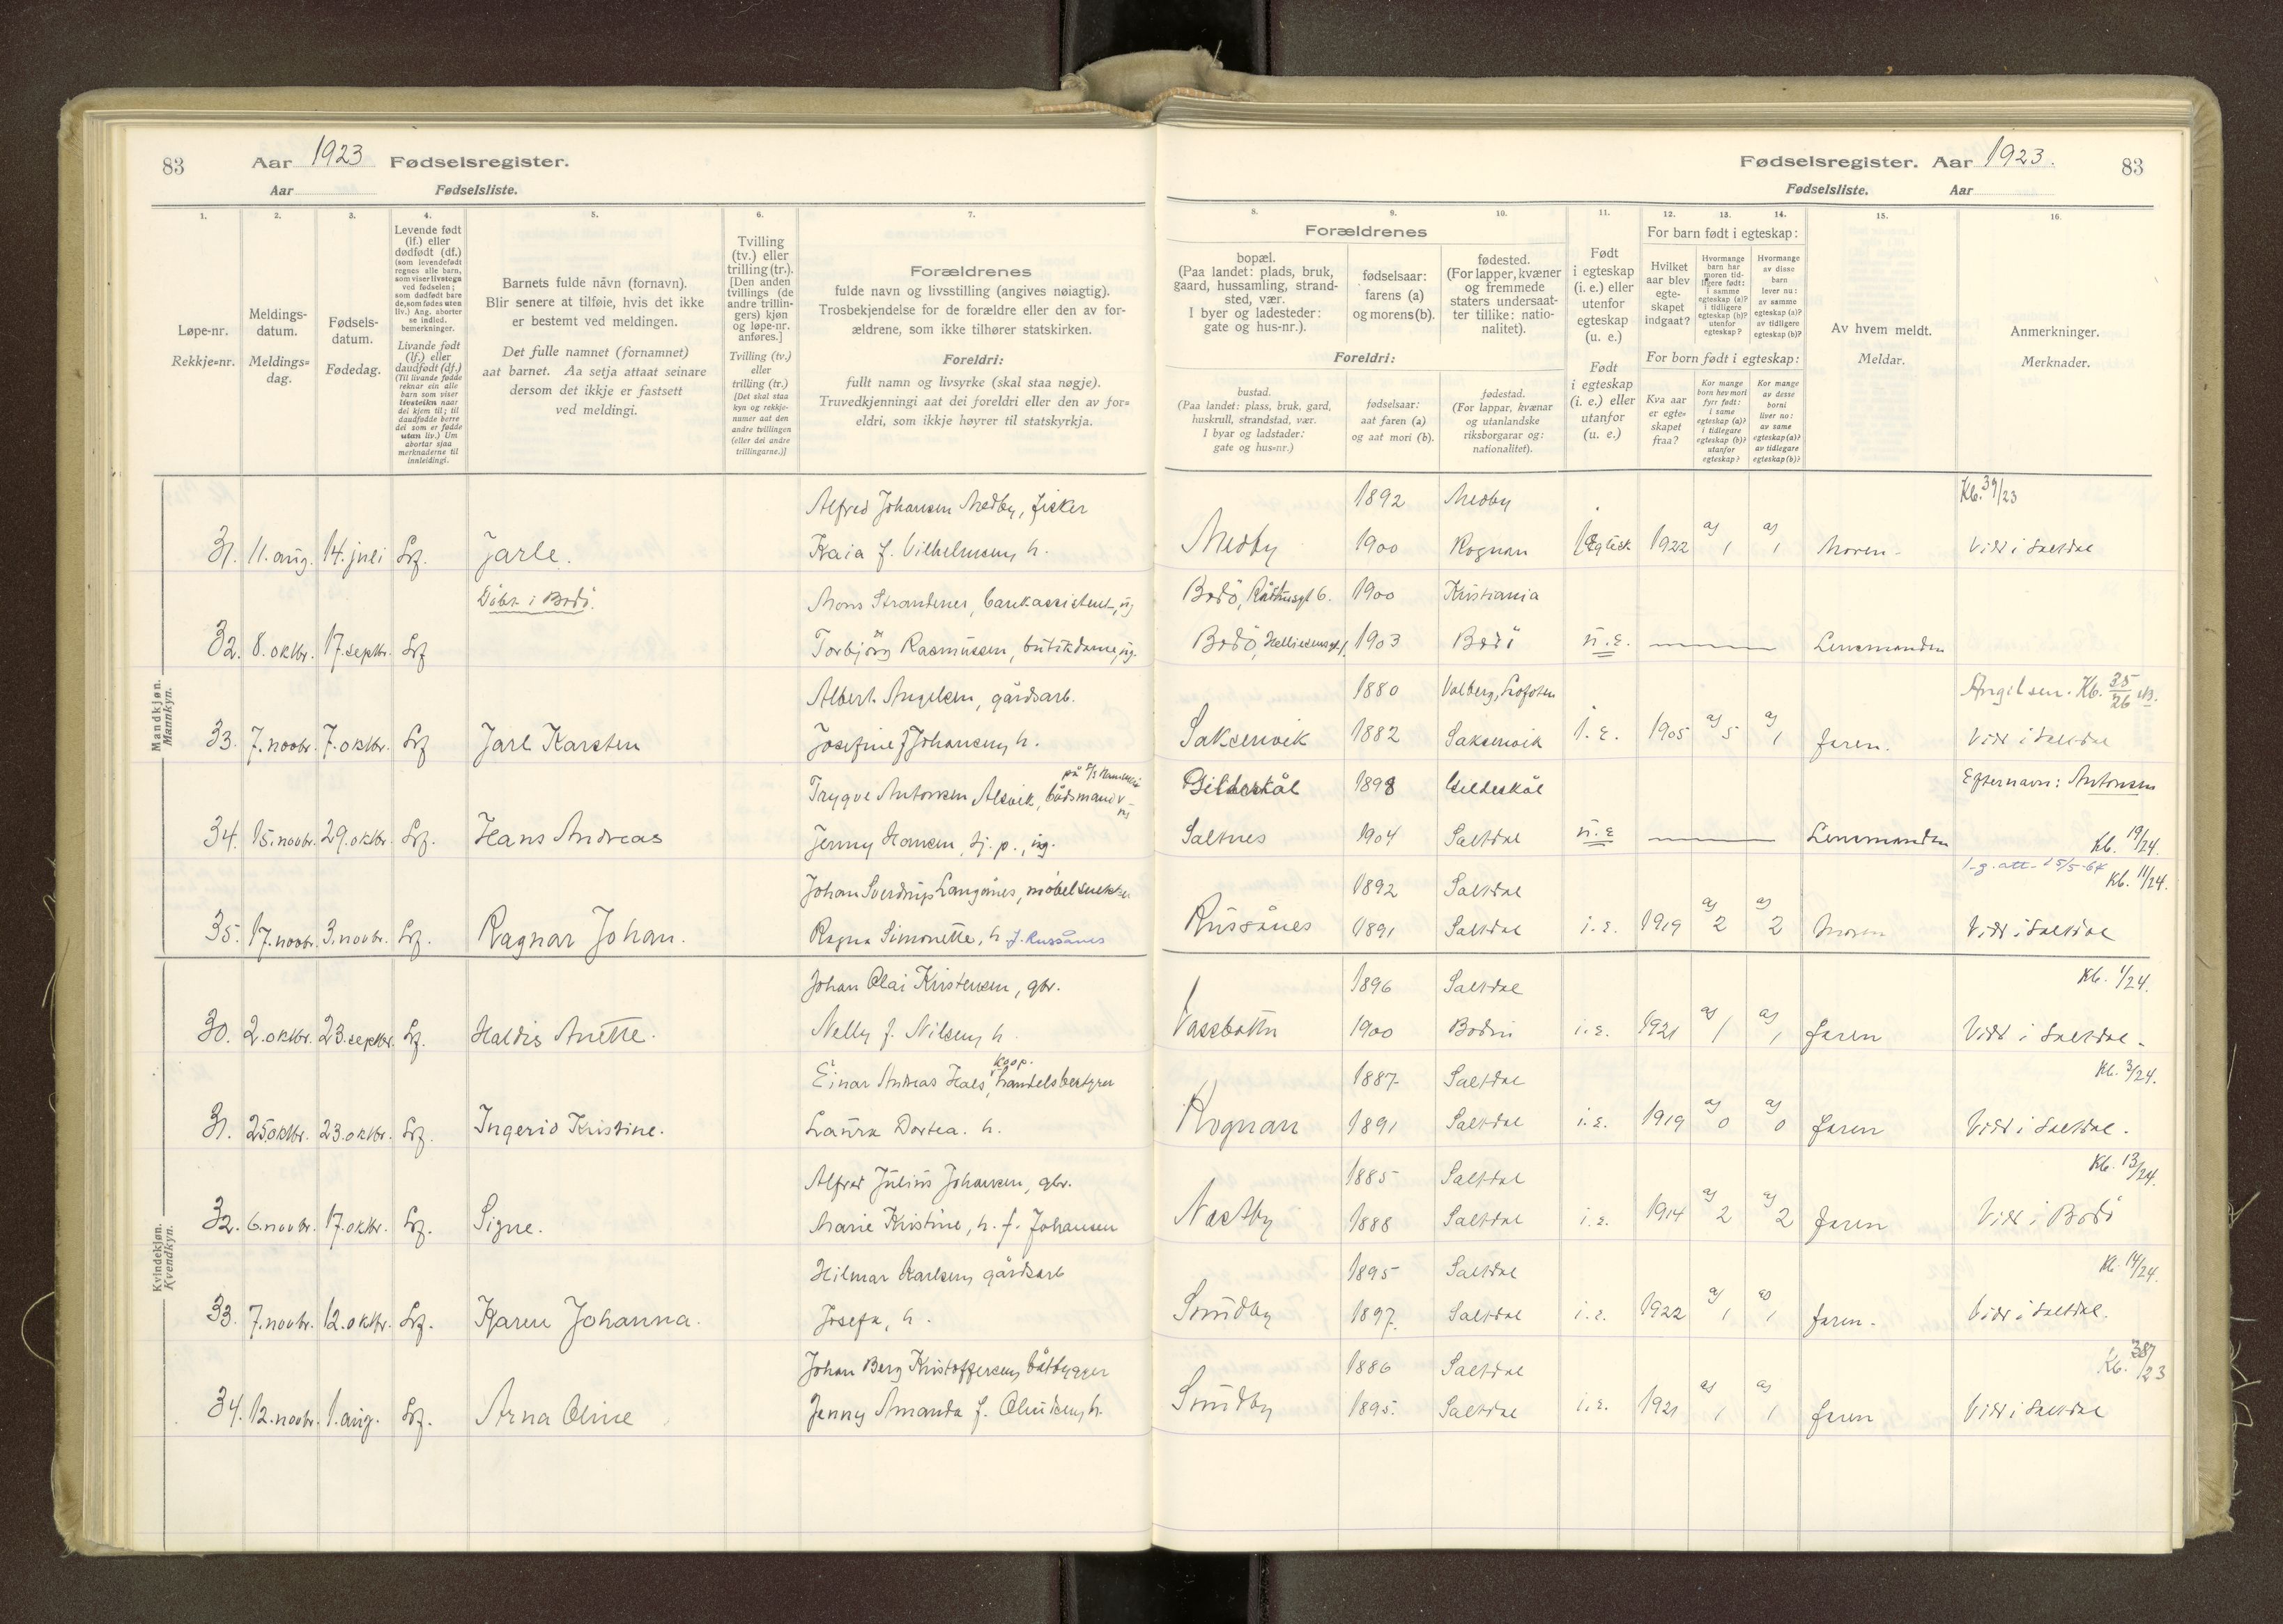 83 Aar 1923 Fødselsregister.
Aar Fødselsliste.
1.
Løpe-nr.
Rekkje=nr.
2.
Meldings-
datum.
Meldings=
dag.
3.
Fødsels-
datum.
Fødedag.
4.
Levende født
(lf.) eller
dødfødt (df.)
(som levendefødt
regnes alle barn,
som viser livstegn
ved fødselen;
som dødfødt bare
de, som fødes uten
liv.) Ang. aborter
se indled.
bemerkninger.
Livande født
(lf.) eller
daudfødt (df.)
(Til livande fødde
reknar ein alle
barn som viser
livsteikn naar
dei kjem til; til
daudfødde berre
dei som er fødde
utan liv.) Um
abortar sjaa
merknaderne til
innleidingi.
5.
Barnets fulde navn (fornavn).
Blir senere at tilføie, hvis det ikke
er bestemt ved meldingen.
Det fulle namnet (fornamnet)
aat barnet. Aa setja attaat seinare
dersom det ikkje er fastsett
ved meldingi.
6.
Tvilling
(tv.) eller
trilling (tr.).
[Den anden
tvillings (de
andre trillin-
gers) kjøn
og løpe-nr.
anføres.]
Tvilling (tv.)
eller
trilling (tr.)
[Det skal staa
kyn og rekkje-
numer aat den
andre tvillingen
(eller dei andre
trillingarne.)]
7.
Forældrenes
fulde navn og livsstilling (angives nøiagtig).
Trosbekjendelse for de forældre eller den av for-
ældrene, som ikke tilhører statskirken.
Foreldri:
fullt namn og livsyrke (skal staa nøgje).
Truvedkjenningi aat dei foreldri eller den av for=
eldri, som ikkje høyrer til statskyrkja.
Mandkjøn.
Mannkyn.
Alfred Johansen Medby, fisker
31. 11. aug. 14. juli Lf. Jarle. Kaia f. Vilhelmsen, h.
Døbt i Bodö. Mons Strandenes, bankassistent, ug
32. 8. oktbr. 17. septbr. Lf Torbjörg Rasmussen, butikdame, ug.
Albert Angelsen, gårdsarb.
33. 7. novbr. 7. oktbr. Lf Jarl Karsten Josefine f Johansen, h.
Trygve Antonsen Alsvik, bådsmand
34. 15. novbr. 29. oktbr. Lf. Hans Andreas Jenny Hansen, tj. p., ug.
Johan Sverdrup Langånes, möbelsnekker
35. 17. novbr. 3. novbr. Lf. Ragnar Johan. Ragna Simonette, h. f. Russånes
Kvindekjøn.
Kvendkyn.
Johan Olai Kristensen, gbr.
30. 2. oktbr. 23. septbr. Lf. Haldis Anette. Nelly f. Nilsen, h
koop.
Einar Andreas Hals, handelsbestyrer
31. 25. oktbr. 23. oktbr. Lf. Ingerid Kristine. Laura Dortea. h.
Alfred Julius Johansen, gbr.
32. 6. novbr. 17. oktbr. Lf. Signe. Marie Kristine, h. f. Johansen
Hilmar Karlsen, gårdsarb
33. 7. novbr. 12. oktbr. Lf. Karen Johanna. Josefa, h.
Johan Berg Kristoffersen, båtbygger
34. 12. novbr. 1. aug. Lf. Arna Oline Jenny Amanda f. Olsen, h.
Fødselsregister. Aar 1923. 83
Fødselsliste. Aar
Forældrenes
8.
bopæl.
(Paa landet: plads, bruk,
gaard, hussamling, strand-
sted, vær.
I byer og ladesteder:
gate og hus-nr.).
9.
fødselsaar:
farens (a)
og morens (b).
10.
fødested.
(For lapper, kvæner
og fremmede
staters undersaat-
ter tillike: natio-
nalitet).
Foreldri:
bustad.
(Paa landet: plass, bruk, gard,
huskrull, strandstad, vær.
I byar og ladstader:
gate og hus=nr.)
fødselsaar:
aat faren (a)
og aat mori (b).
fødestad.
(For lappar, kvænar
og utanlandske
riksborgarar og:
nationalitet).
11.
Født
i egteskap
(i. e.) eller
utenfor
egteskap
(u. e.)
Født
i egteskap
(i. e.) eller
utanfor
(u. e.)
For barn født i egteskap:
12.
Hvilket
aar blev
egte-
skapet
indgaat?
13.
Hvormange
barn har
moren tid-
ligere født:
i samme
egteskap (a)?
i tidligere
egteskap (b)?
utenfor
egteskap?
14.
Hvormange
av disse
barn
lever nu:
av samme
egteskap (a)?
av tidligere
egteskap (b)?
For born født i egteskap:
Kva aar
er egte=
skapet
fraa?
Kor mange
born hev mori
fyrr født:
i same
egteskap (a)?
i tidlegare
egteskap (b)?
utanfor
egteskap?
Kor mange
av desse
borni
liver no:
av same
egteskap (a)?
av tidlegare
egteskap (b)?
15.
Av hvem meldt.
Meldar.
16.
Anmerkninger.
Merknader.
1892 Medby Kb. 39/23
Medby 1900 Rognan 1922 a) 1 a) 1 Moren. Vidd i Saltdal
Bodö, Rådhusgt 6. 1900 Kristiania
Bodö, 1903 Bodö u. e. Lensmanden
1880 Valberg, Lofoten Angelsen. Kb. 35/26
Saksenvik 1882 Saksenvik i. e. 1905 a) 5 a) 1 faren. Vidd i Saltdal
Gildeskål 1898 Gildeskål Efternavn: Antonsen
Saltnes 1904 Saltdal u. e Lensmanden Kb. 19/24.
1892 Saltdal l.g. att. 25/5-64 Kb. 11/24.
Russånes 1891 Saltdal i. e. 1919 a) 2 a) 2 Moren Vidd i Saltdal
1896 Saltdal Kb. 1/24.
Vassbotn 1900 Bodin i. e. 1921 a) 1 a) 1 faren Vidd i Saltdal.
1887 Saltdal Kb. 3/24.
Rognan 1891 Saltdal i. e. 1919 a) 0 a) 0 faren Vidd i Saltdal.
1885 Saltdal Kb. 13/24.
Nestby 1888 Saltdal i. e. 1914 a) 2 a) 2 faren Vidd i Bodö
1895 Saltdal Kb. 14/24.
Sundby 1897. Saltdal i. e. 1922 a) 1 a) 1 faren. Vidd i Saltdal.
1886 Saltdal Kb. 38/23
Sundby 1895. Saltdal i. e. 1921 a) 1 a) 1 faren Vidd i Saltdal